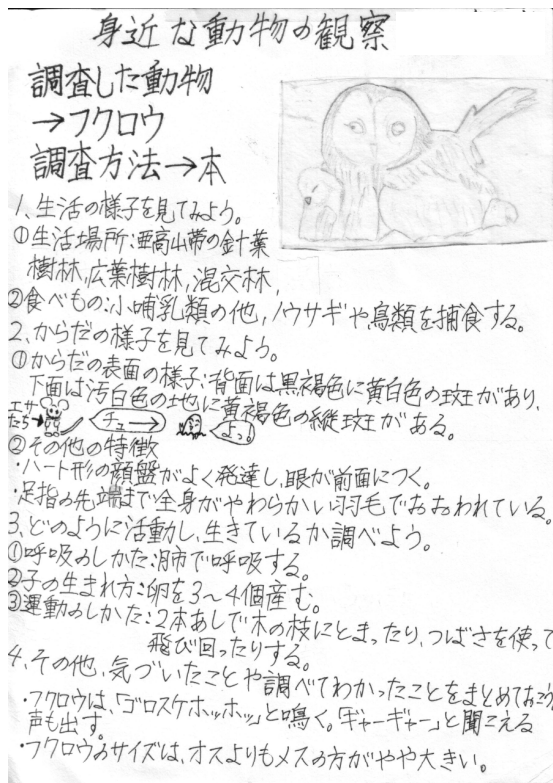 身近な動物の観察
調査した動物
→フクロウ
調査方法→本
1、生活の様子を見てみよう。
①生活場所:亜高山帯の針葉
樹林,広葉樹林,混交林,
②食べもの:小哺乳類の他,ノウサギや,鳥類を捕食する。
2、からだの様子を見てみよう。
①からだの表面の様子:背面は黒褐色に黄白色の斑があり、
下面は汚白色の地に黄褐色の縦斑がある。
エサたち→
チュー→
よっ。
②その他の特徴
・ハート形の顔盤がよく発達し、眼が前面につく。
・足指の先端まで全身がやわらかい羽毛でおおわれている。
3、どのように活動し、生きているか調べよう。
①呼吸のしかた:肺で呼吸する。
②子の生まれ方:卵を3~4個産む。
③運動のしかた:2本あしで木の枝にとまったり、つばさを使って
飛び回ったりする。
4、その他、気づいたことや調べてわかったことをまとめておこう
・フクロウは、「ゴロスケホッホッ」と鳴く。「ギャーギャー」と聞こえる
声も出す。
・フクロウのサイズは、オスよりもメスの方がやや大きい。